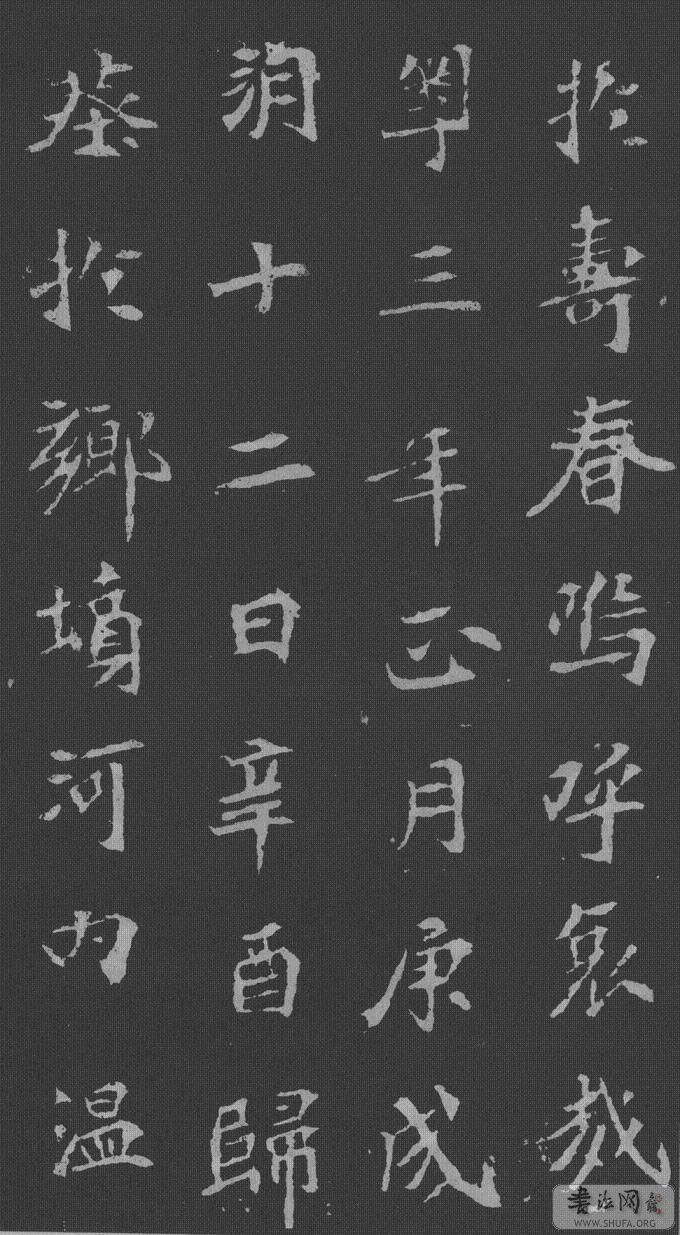 於壽春嗚呼哀哉
粵三年正月庚戌
朔十二日辛酉歸
葬於鄉墳河内温
書法网
WWW.SHUFA.ORG